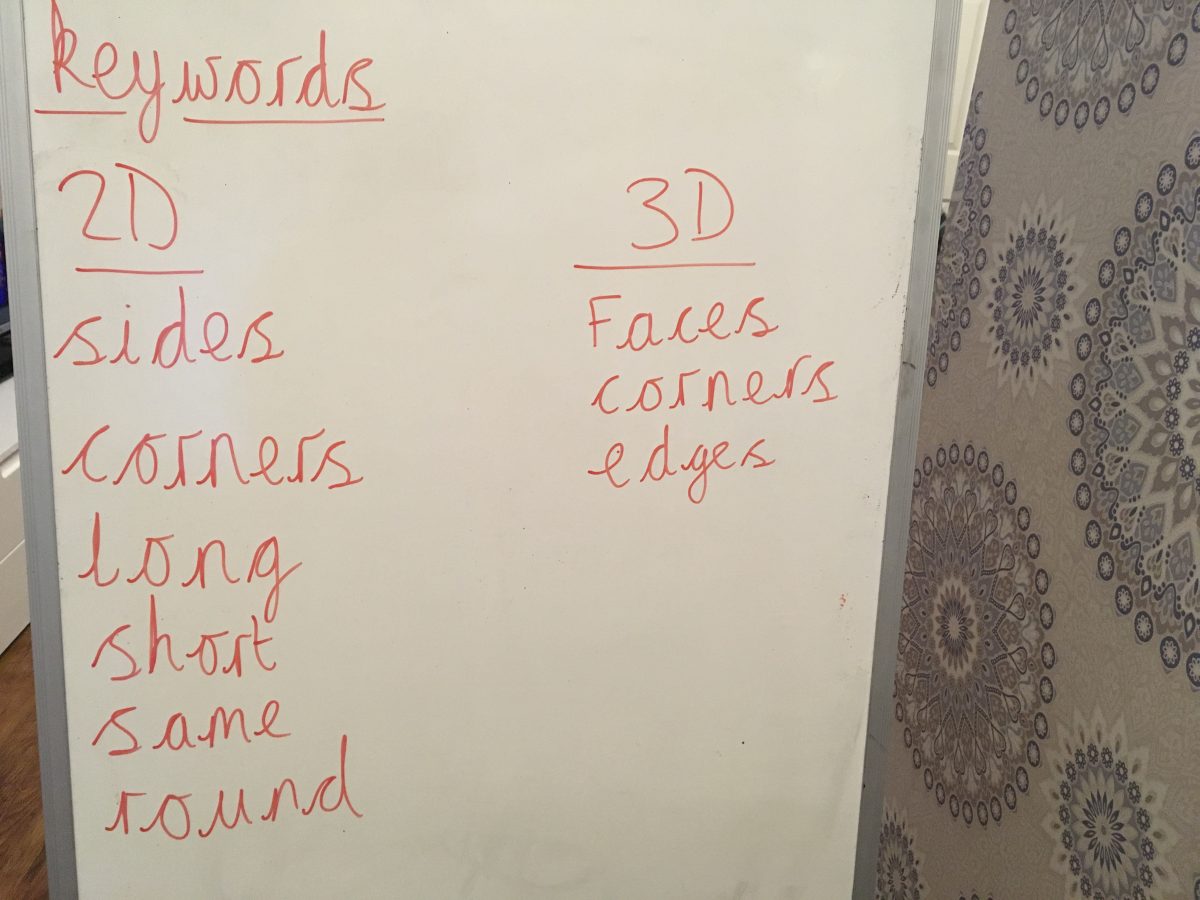 keywords
2D
sides
corners
long
short
same
round
3D
Faces
corners
edges